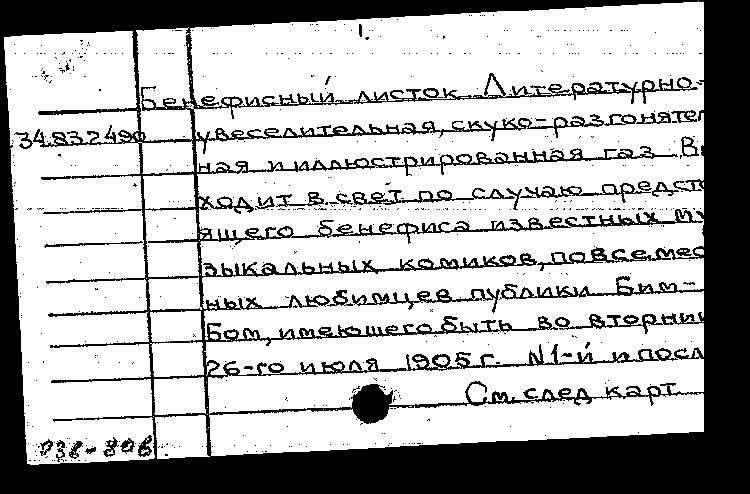 1.
Бенефисный листок Литературно-
34.832490 увеселительная, скуко-разгонятел
ная и иллюстрированная газ. В
ходит в свет по случаю предст
ящего бенефиса известных му
зыкальных комиков, повсемес
ных любимцев публики Бим-
Бом, имеющего быть во вторни
26-го июля 1905 г. N1-й и посл
См. след карт